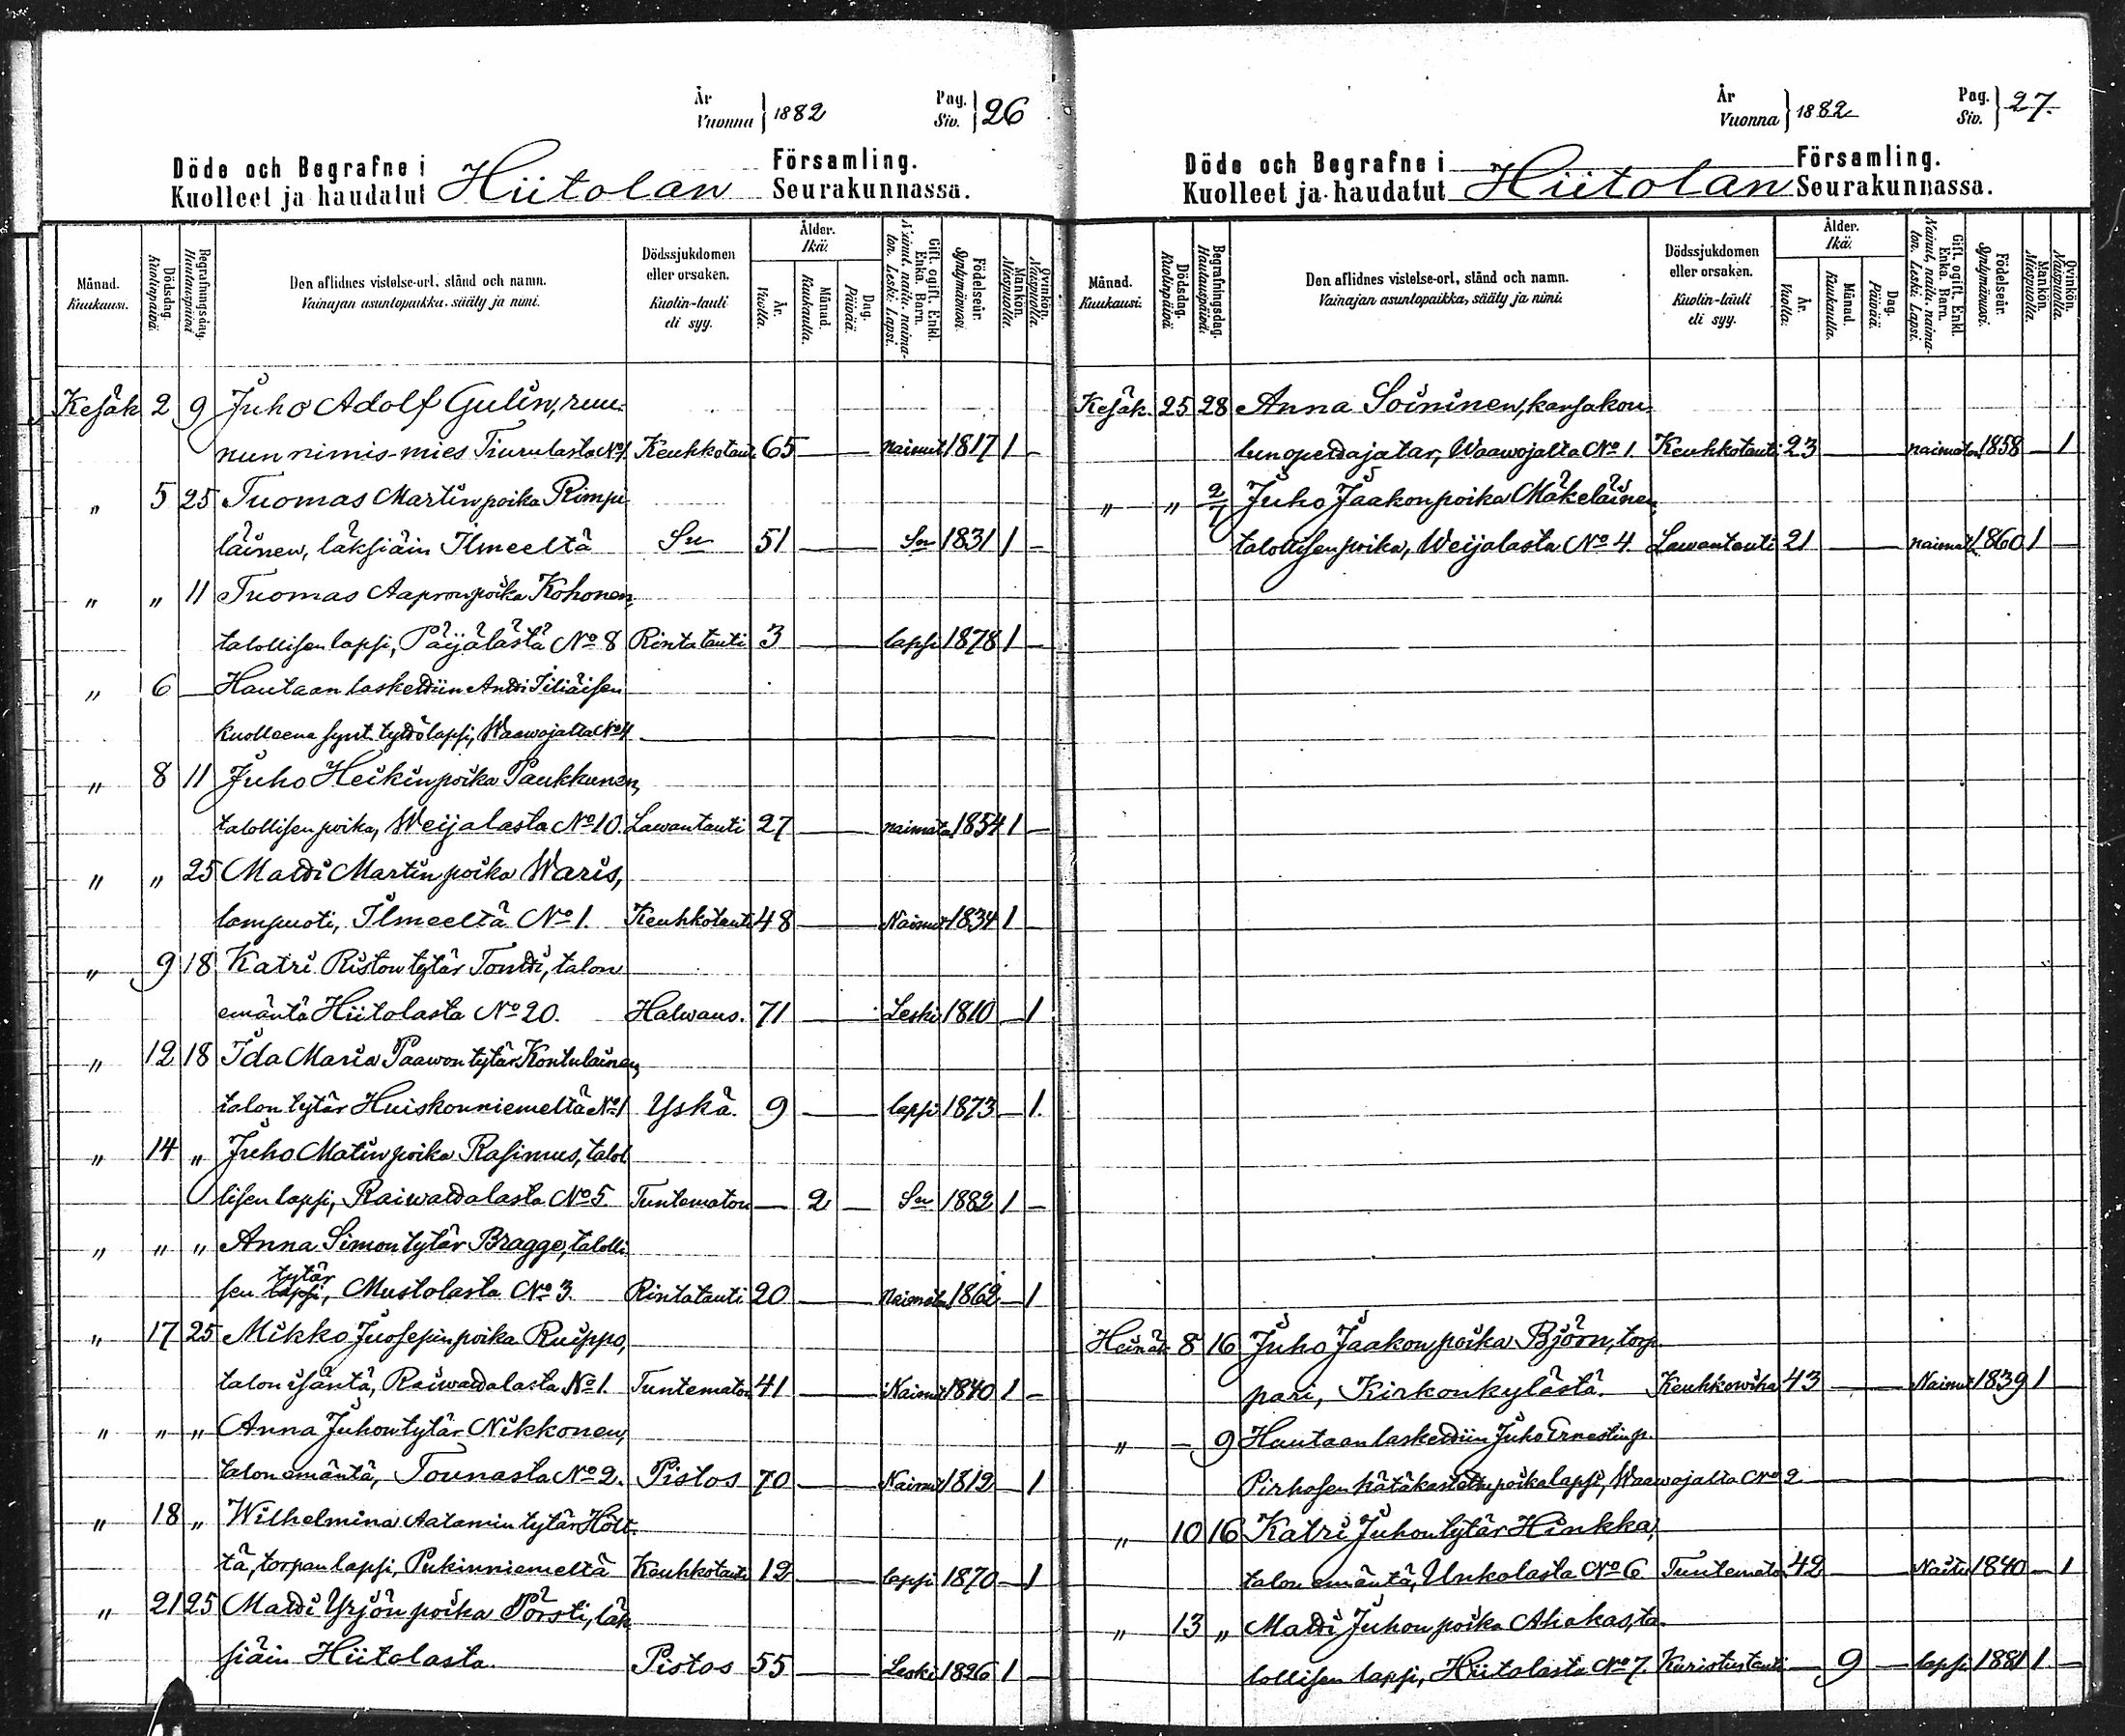 År
Vuonna } 1882
Pag.
Siv. } 26
Döde och Begrafne i Hiitolan Församling.
Kuolleet ja haudatut Seurakunnassa.
Månad. Kuukausi.
Dödsdag. Kuolinpäivä.
Begrafningsdag. Hautauspäivä
Den aflidnes vistelse-ort, stånd och namn.
Vainajan asuntopaikka, sääty ja nimi.
Dödssjukdomen eller orsaken.
Kuolin-tauti eli syy.
Ålder. Ikä.
År. Vuotta.
Månad. Kuukautta.
Dag. Päivää.
Gift, ogift. Enkl. Enka. Barn.
Nainut, naitu, naimaton. Leski. Lapsi.
Födelseår. Syntymävuosi.
Mankön. Miespuolia.
Qvinkön. Naispuolia.
Kesäk. 2 9 Juho Adolf Gulin, ruu-
nun nimis-mies Tiurulasta No 1. Keuhkotauti 65 — naimut 1817 1 —
" 5 25 Tuomas Martinpoika Rimpi
läinen, läksiäin Ilmeeltä Sn 51 — Sn 1831 1 —
" " 11 Tuomas Aapronpoika Kohonen,
talollisen lapsi, Päijälästä No 8 Rintatauti 3 — lapsi 1878 1 —
" 6 — Hautaan laskettiin Antti Iiliäisen
kuolleena synt. tyttölapsi, Waawojalta No 4 —
" 8 11 Juho Heikinpoika Paukkunen,
talollisen poika, Weijalasta No 10. Lawantauti 27 — naimato 1854 1 —
" " 25 Matti Martinpoika Waris,
lampuoti, Ilmeeltä No 1. Keuhkotauti 48 — Naimut 1834 1 —
" 9 18 Katri Ristontytär Tontti, talon
emäntä Hiitolasta No 20. Halwaus. 71 — Leski 1810 — 1
" 12 18 Ida Maria Paawontytär Kontulainen,
talon tytär Huiskonniemeltä No 1 Yskä. 9 — lapsi 1873 — 1.
" 14 " Juho Matinpoika Rasimus, talol
lisen lapsi, Raiwattalasta No 5. Tuntematon — 2 — Sn 1882 1 —
" " " Anna Simontytär Bragge, talolli
tytär
sen lapsi, Mustolasta No 3. Rintatauti 20 — naimato 1862 — 1
" 17 25 Mikko Juosepinpoika Ruippo,
talon isäntä, Raiwattalasta No 1. Tuntematon 41 — Naimut 1840 1 —
" " " Anna Juhontytär Nikkonen,
talon emäntä, Tounasta No 2. Pistos 70 — Naimut 1812 — 1
" 18 " Wilhelmina Aatamintytär Hölt-
tä, torpan lapsi, Pukinniemeltä Keuhkotauti 12 — lapsi 1870 — 1
" 21 25 Matti Yrjönpoika Pörsti, läk
siäin Hiitolasta. Pistos 55 — Leski 1826 1 —
År
Vuonna } 1882
Pag.
Siv. } 27.
Döde och Begrafne i Hiitolan Församling.
Kuolleet ja haudatut Seurakunnassa.
Månad. Kuukausi.
Dödsdag. Kuolinpäivä.
Begrafningsdag. Hautauspäivä
Den aflidnes vistelse-ort, stånd och namn.
Vainajan asuntopaikka, sääty ja nimi.
Dödssjukdomen eller orsaken.
Kuolin-tauti eli syy.
Ålder. Ikä.
År. Vuotta.
Månad. Kuukautta.
Dag. Päivää.
Gift, ogift. Enkl. Enka. Barn.
Nainut, naitu, naimaton. Leski. Lapsi.
Födelseår. Syntymävuosi.
Mankön. Miespuolia.
Qvinkön. Naispuolia.
Kesäk. 25 28 Anna Soininen, kansakou-
lunopettajatar, Waawojalta No 1. Keuhkotauti 23 — naimaton 1858 — 1
" " 2/7 Juho Jaakonpoika Mäkeläinen,
talollisen poika, Weijalasta No 4. Lawantauti 21 — naimat. 1860 1 —
Heinäk. 8 16 Juho Jaakonpoika Björn, torp-
pari, Kirkonkylästä. Keuhkowika 43 — Naimut 1839 1 —
" — 9 Hautaan laskettiin Juho Ernestinp.
Pirhosen hätäkastettu poikalapsi, Waawojalta No 2 —
" 10 16 Katri Juhontytär Hinkka,
talon emäntä, Unkolasta No 6. Tuntemato 42 — Naitu 1840 — 1
" 13 " Matti Juhonpoika Ahokas, ta-
lollisen lapsi, Hiitolasta No 7. Kuristustauti — 9 — lapsi 1881 1. —